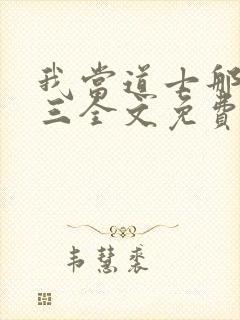 我當道士那
三全文免費
韦慧裘